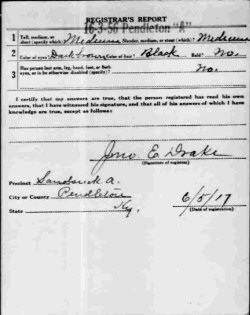 REGISTRAR'S REPORT
16-3-56 Pendleton "A"
1 Tall, medium, or short (specify which)? Medium Slender, medium, or stout (which)? Medium
2 Color of eyes? Dark brown Color of hair? Black Bald? No.
3 Has person lost arm, leg, hand, foot, or both eyes, or is he otherwise disabled (specify)? No.
I certify that my answers are true, that the person registered has read his own answers, that I have witnessed his signature, and that all of his answers of which I have knowledge are true, except as follows:
Jno E Drake
(Signature of registrar)
Precinct A.
City or County Pendleton
State Ky.
6/5/17
(Date of registration)